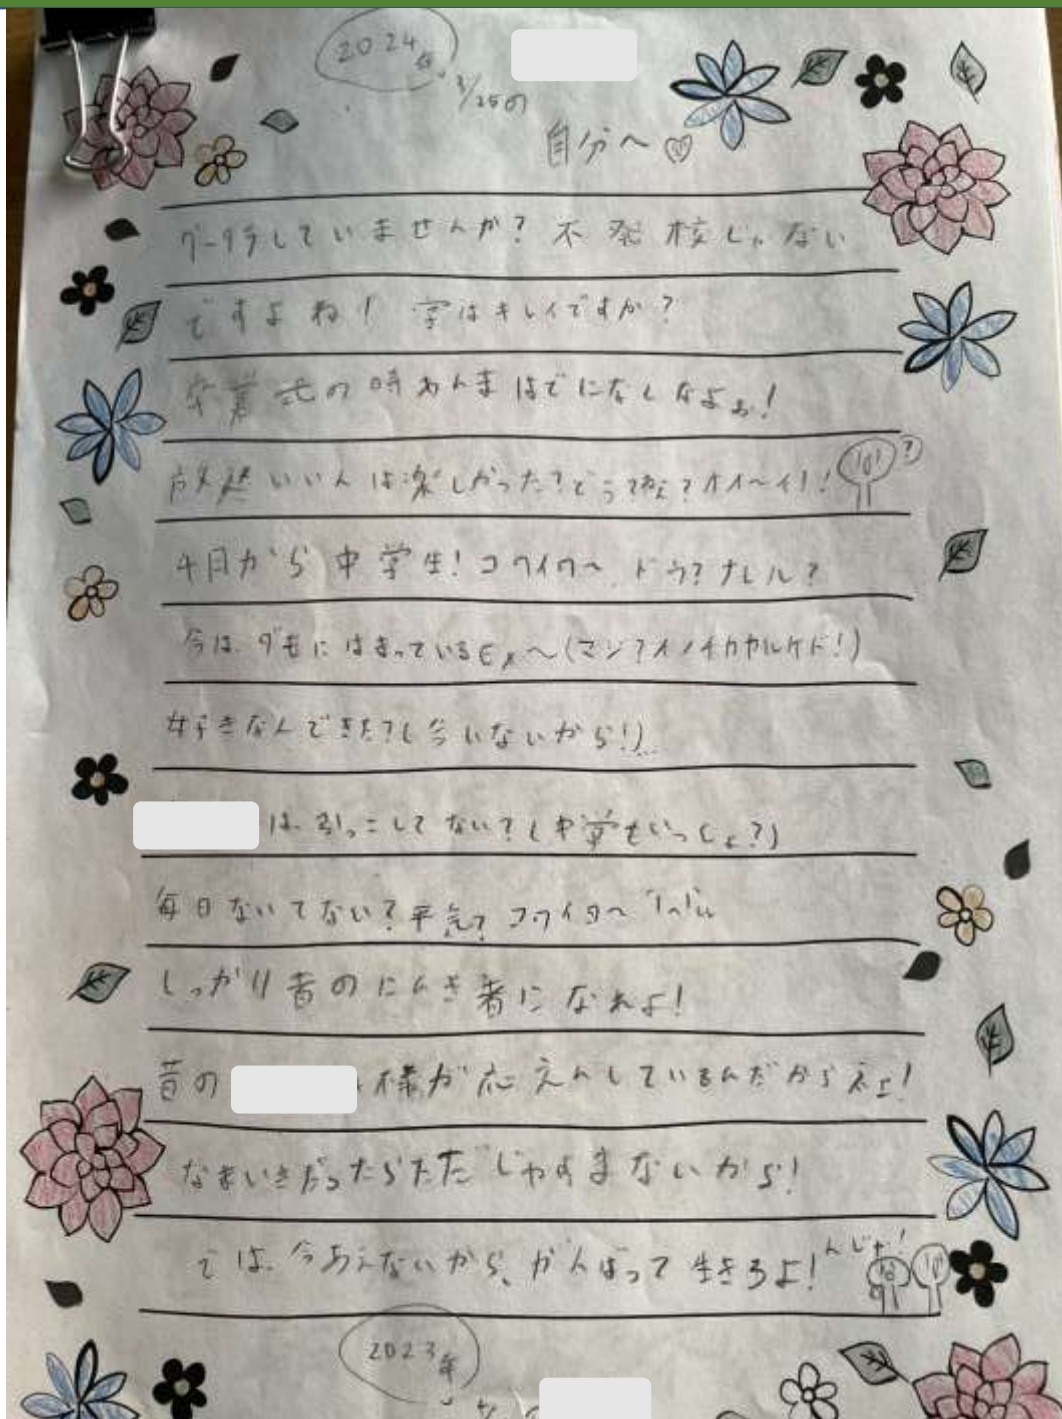 2024年
3/25の
自分へ♡
グータラしていませんか?不発校じゃない
ですよね! 字はキレイですか?
卒業式の時あんまはでになしなよぉ!
放送いいんは楽しかった?どうてねぇ?オイ〜イ!!
4月から中学生!コワイワ〜 ドウ?ナレル?
今は、ダモにはまっているも〜(マン?イノチカカルケド!)
好きなんできた?(今いないから!)
は、引っこしてない?(中学もいっしょ?)
毎日ないてない?平気?コワイヨ〜
しっかり昔のにんき者になれよ!
昔の 様が応えんしているんだからネェ!
なまいきだったらただじゃすまないから!
では、今あえないから、がんばって生きろよ!んじゃ!
2023年